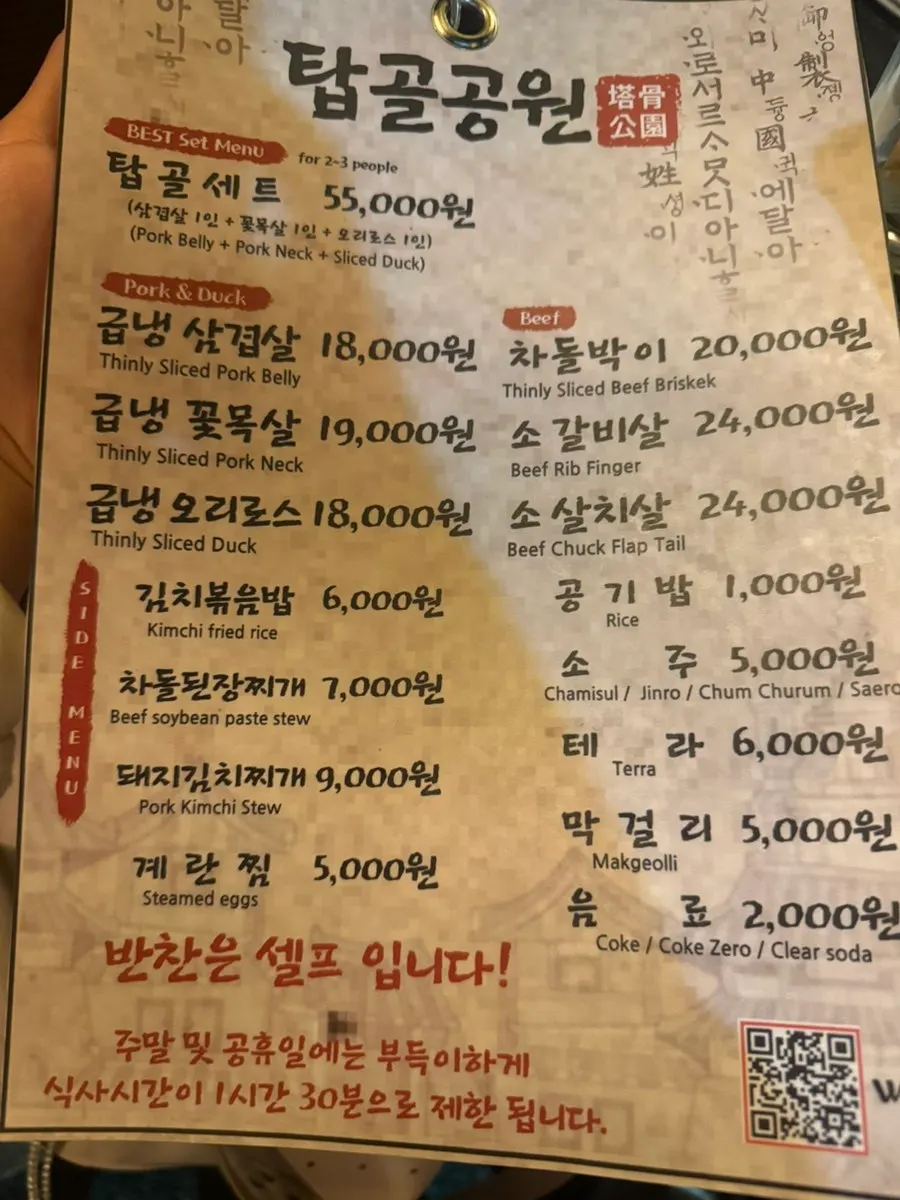 탑골공원
塔骨
公園
BEST Set Menu
for 2~3 people
탑골세트 55,000원
(삼겹살 1인 + 꽃목살 1인 + 오리로스 1인)
(Pork Belly + Pork Neck + Sliced Duck)
Pork & Duck
급냉 삼겹살 18,000원
Thinly Sliced Pork Belly
급냉 꽃목살 19,000원
Thinly Sliced Pork Neck
급냉 오리로스 18,000원
Thinly Sliced Duck
Beef
차돌박이 20,000원
Thinly Sliced Beef Briskek
소 갈비살 24,000원
Beef Rib Finger
소 살치살 24,000원
Beef Chuck Flap Tail
SIDE MENU
김치볶음밥 6,000원
Kimchi fried rice
차돌된장찌개 7,000원
Beef soybean paste stew
돼지김치찌개 9,000원
Pork Kimchi Stew
계란찜 5,000원
Steamed eggs
공기밥 1,000원
Rice
소주 5,000원
Chamisul / Jinro / Chum Churum / Saero
테라 6,000원
Terra
막걸리 5,000원
Makgeolli
음료 2,000원
Coke / Coke Zero / Clear soda
반찬은 셀프 입니다!
주말 및 공휴일에는 부득이하게
식사시간이 1시간 30분으로 제한 됩니다.